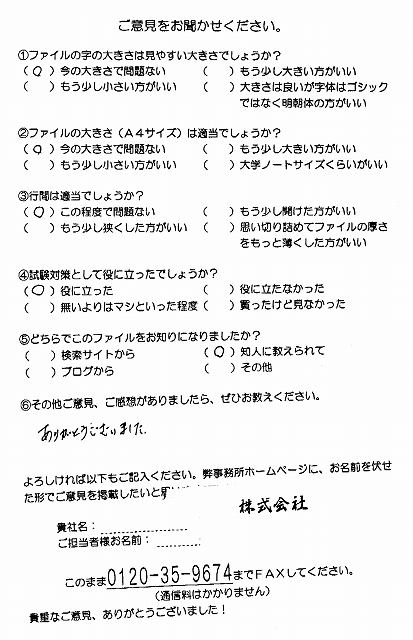 ご意見をお聞かせください。
①ファイルの字の大きさは見やすい大きさでしょうか?
(○)今の大きさで問題ない ( )もう少し大きい方がいい
( )もう少し小さい方がいい ( )大きさは良いが字体はゴシック
ではなく明朝体の方がいい
②ファイルの大きさ(A4サイズ)は適当でしょうか?
(○)今の大きさで問題ない ( )もう少し大きい方がいい
( )もう少し小さい方がいい ( )大学ノートサイズくらいがいい
③行間は適当でしょうか?
(○)この程度で問題ない ( )もう少し開けた方がいい
( )もう少し狭くした方がいい ( )思い切り詰めてファイルの厚さ
をもっと薄くした方がいい
④試験対策として役に立ったでしょうか?
(○)役に立った ( )役に立たなかった
( )無いよりはマシといった程度 ( )買ったけど見なかった
⑤どちらでこのファイルをお知りになりましたか?
( )検索サイトから (○)知人に教えられて
( )ブログから ( )その他
⑥その他ご意見、ご感想がありましたら、ぜひお教えください。
ありがとうございました。
よろしければ以下もご記入ください。弊事務所ホームページに、お名前を伏せ
た形でご意見を掲載したいと
株式会社
貴社名:
ご担当者様お名前:
このまま0120-35-9674までFAXしてください。
(通信料はかかりません)
貴重なご意見、ありがとうございました!